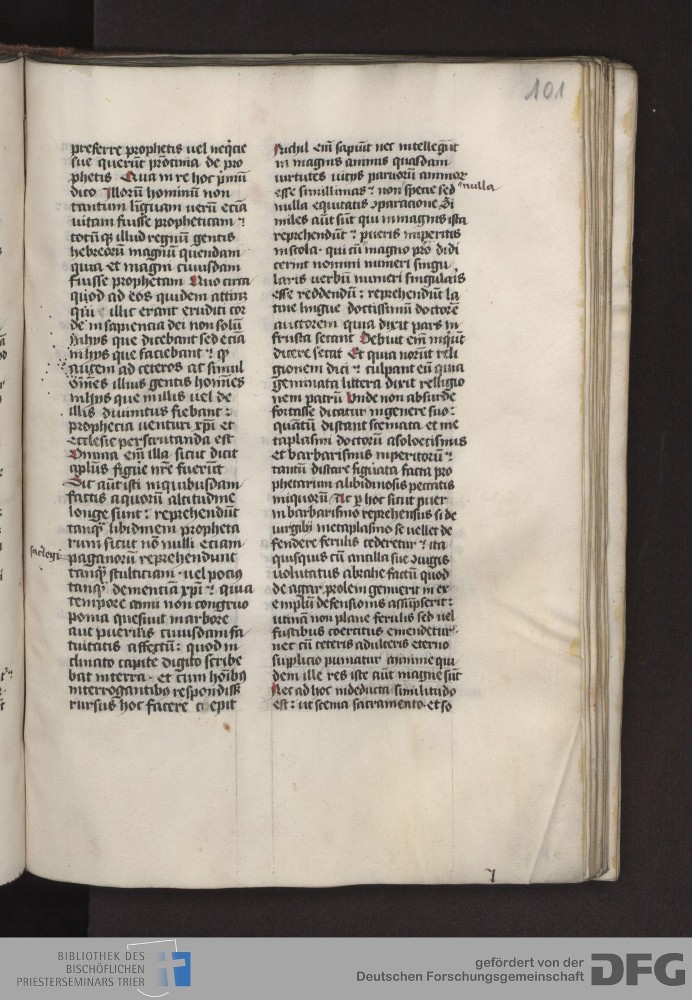 101
preferre prophetis uel neq̄cie
sue querūt p̄rōtinia de pro
phetis Qua in re hoc p̄mū
dico Illorū hominū non
tantum liguam uerū eciā
uitam fuisse propheticam ⁊
totūqꝫ illud regnū gentis
hebreorū magnū quendam
quia et magni cuiusdam
fuisse prophetam Quo circa
quod ad eos quidem attinꝫ
qui illic erant eruditi cor
de in sapiencia dei non solū
in hijs que dicebant sed eciā
in hijs que faciebant ⁊ qꝫ
autem ad ceteros ac simul
om̄es illius gentis homīes
in hijs que in illis uel de
illis diuinitus fiebant ꝫ
prophecia uenturi xp̄i et
ecclesie perscrutanda est
Omnia em̄ illa sicut dicit
aplūs figūe nr̄e fuerūt
Sit aūt isti in quibusdam
factis a quorū altitudine
longe sunt ꝫ reprehendūt
tanqꝫ libidinem propheta
rum sicut nō nulli etiam
sacrilegi
paganorū reprehendunt
tanqꝫ stulticiam · uel pociꝰ
tanqꝫ demenciam xp̄i ⁊ quia
tempore anni non congruo
poma quesiuit in arbore
aut puerilis cuiusdam fa
tuitatis affectū ꝫ quod in
clinato capite digito scribe
bat in terra · et cum hoībꝰ
interrogantibꝰ respondissꝫ
rursus hoc facere coepit
Nichil em̄ sapiūt nec intellegūt
in magnis animis quasdam
uirtutes uicijs paruorū animor
esse simillimas ⁊ non specie sed
nulla
nulla equitatis ꝯparacione Si
miles aūt sūt qui in magnis ista
reprehendūt ⁊ pueris inperitis
in scola · qui cū magno pro didi
cerint nomini numeri singu
laris uerbū numeri singularis
esse reddendū ꝫ reprehendūt la
tine lingue doctissimū doctorē
auctorem quia dixit pars in
frusta secant Debuit em̄ inqūt
dicere secat Et quia norūt reli
gionem dici ⁊ culpant eū quia
geminata littera dixit relligio
nem patrū Vnde non absurde
fortasse dicatur in genere suo ꝫ
quātū distant scemata et me
taplasmi doctorū a soloecismis
et barbarismis inperitorū ⁊
tantū distare figurata facta pro
phetarum a libidinosis peccatis
iniquorū Ac ꝑ hoc sicut puer
in barbarismo reprehensus si de
uirgilij metaplasmo se uellet de
fendere ferulis cederetur ⁊ ita
quisquis cū ancilla sue ꝯiugis
uolutatus abrahe factū quod
de agar prolem genuerit in ex
emplū defensionis assūpserit ꝫ
utinā non plane ferulis sed uel
fustibus coercitus emendetur
nec cū ceteris adulteris eterno
supplicio puniatur Minime qui
dem ille res iste aūt magne sūt
Nec ad hoc inde ducta similitudo
est ꝫ ut scema sacramento · et so
BIBLIOTHEK DES
BISCHÖFLICHEN
PRIESTERSEMINARS TRIER
gefördert von der
Deutschen Forschungsgemeinschaft
DFG